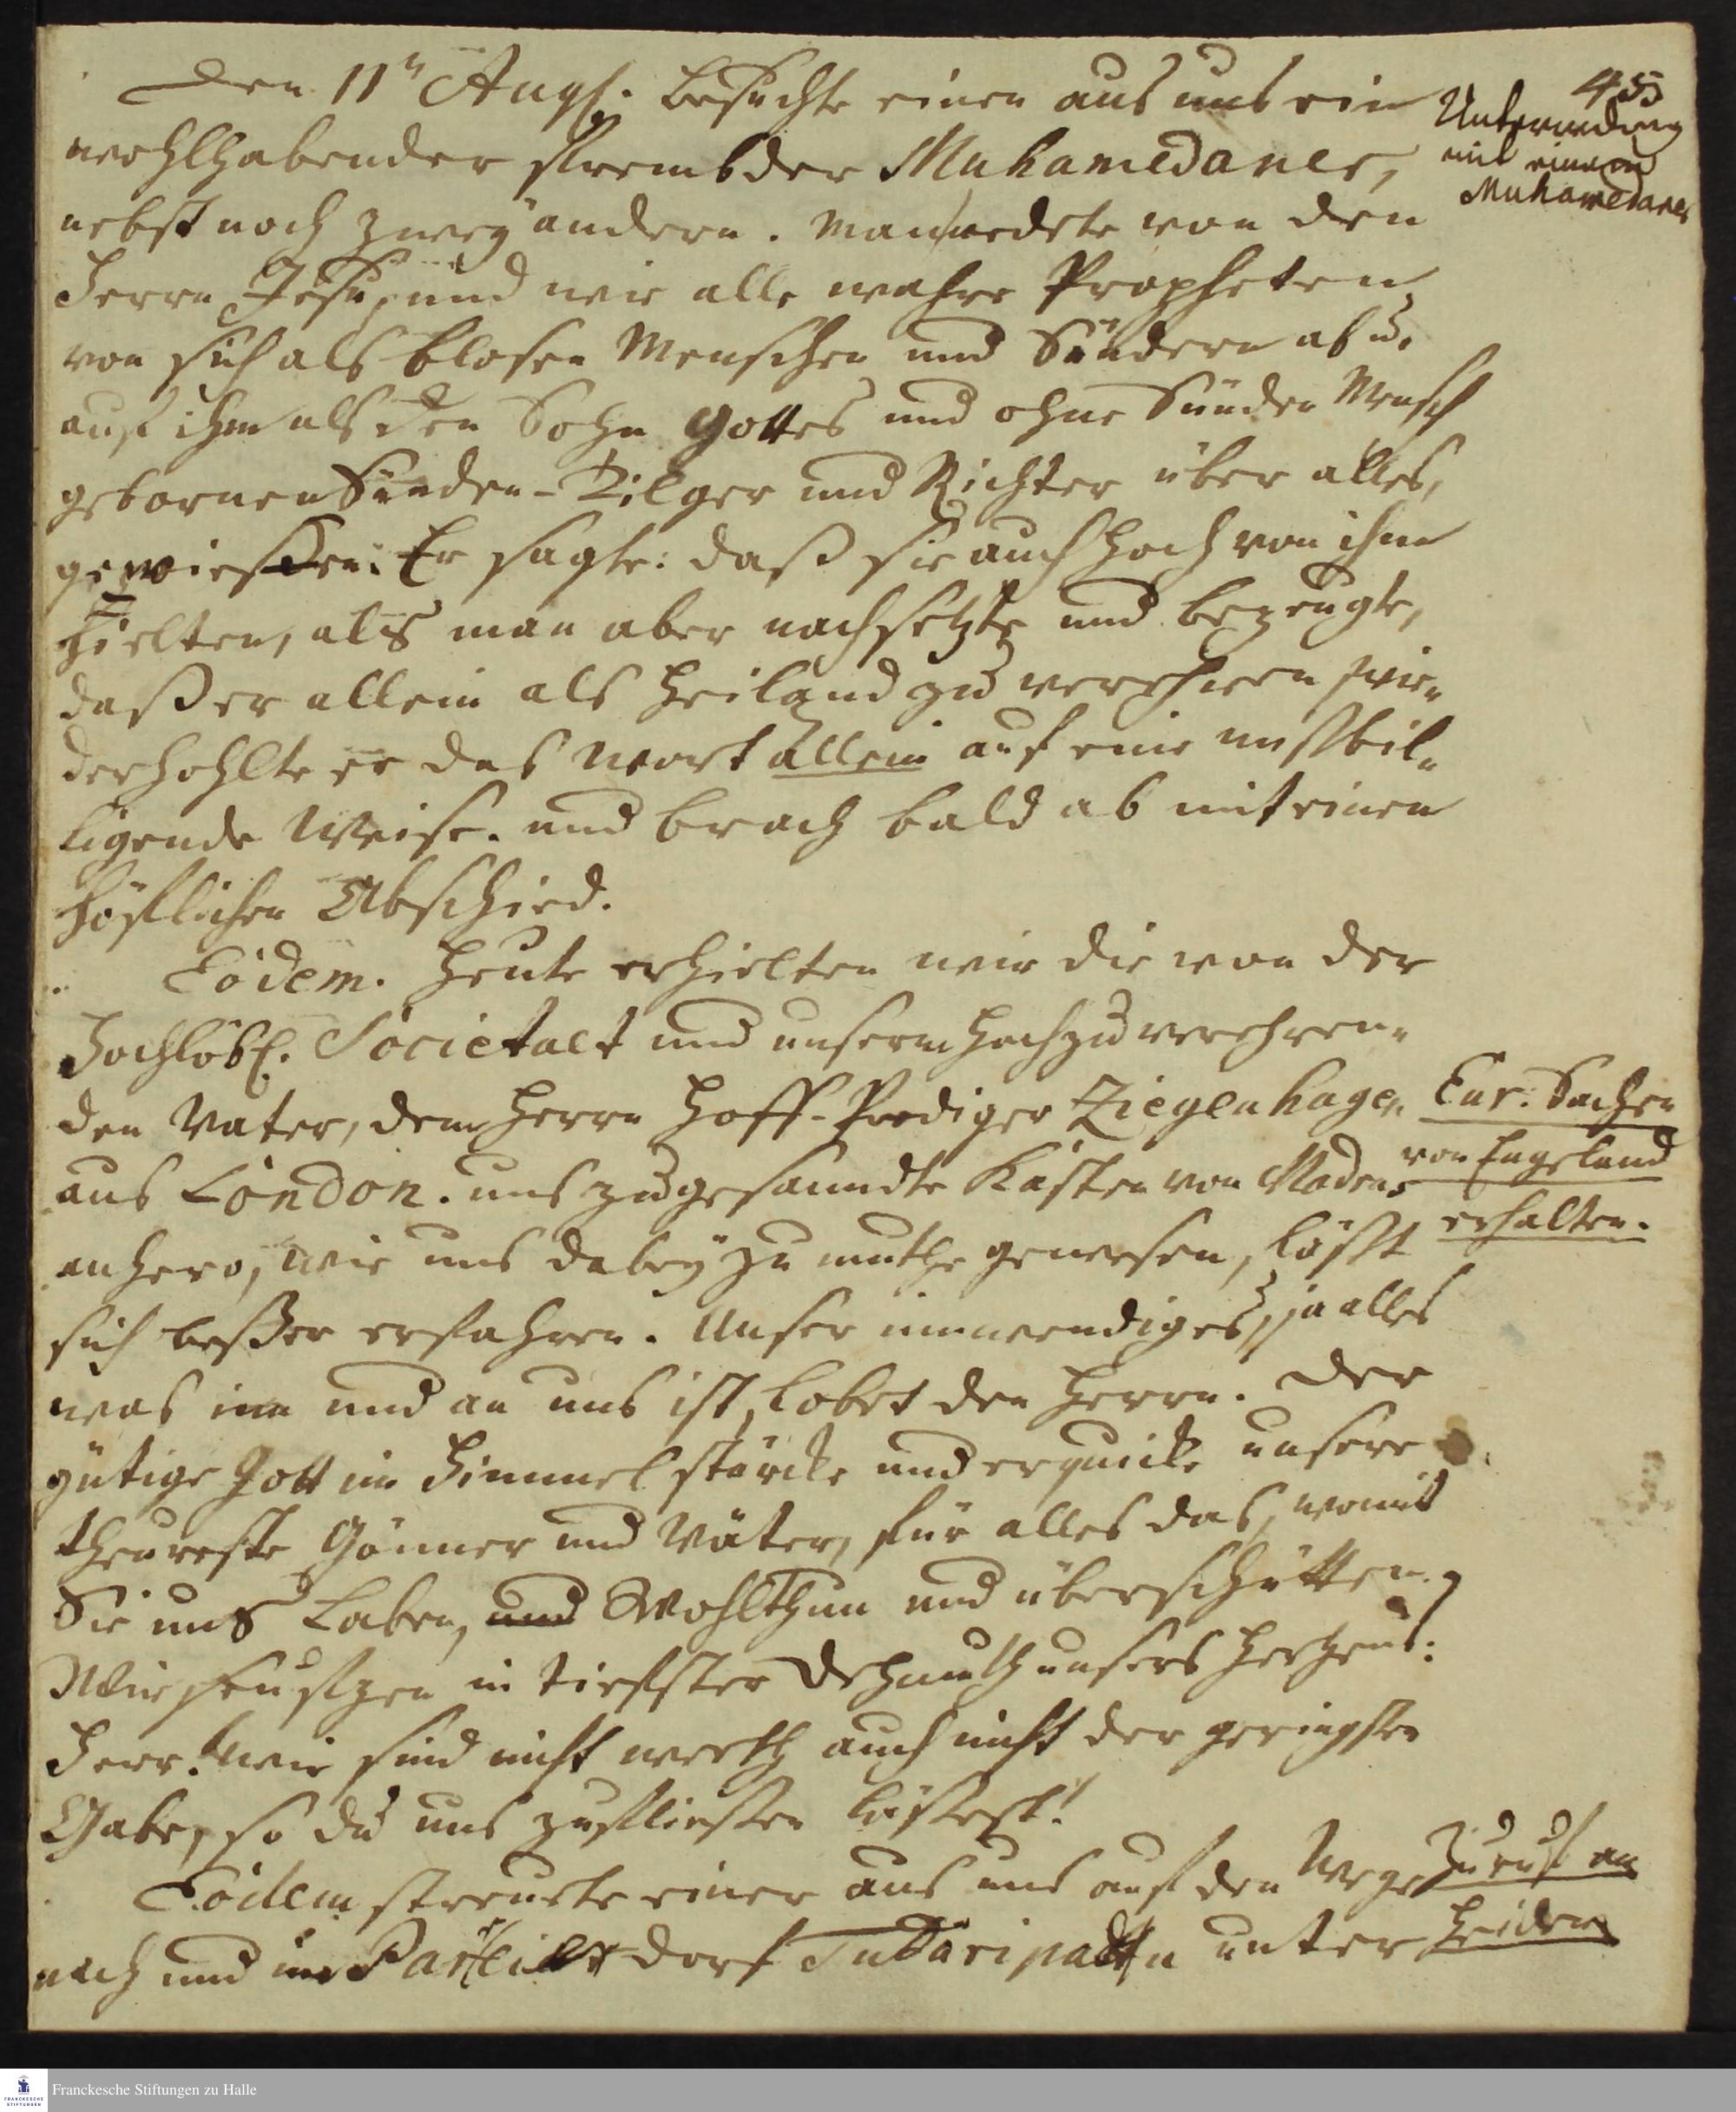 455
Den 11n Augs. besuchte einen aus uns ein
wohlhabender frembder Muhamedaner,
nebst noch zweÿ andern. Man redete von den
Herrn Jesu, und wie alle wahre Propheten
von sich als blosen Menschen und Sündern ab u.
auf ihm als den Sohn Gottes und ohne Sünden Mensch
gebornen Sünden-Tilger und Richter über alles,
gewiesen. Er sagte: daß sie auch hoch von ihm
hielten, als man aber nachsetzte und bezeugte,
daß er allein als Heiland zu verehren wie-
derhohlte er das Wort allein auf eine missbil-
ligende Weise. und brach bald ab mit einen
höflichen Abschied.
Unterredung
mit einem
Muhamedaner
Eodem. Heute erhielten wir die von der
Hochlöbl. Societaet und unserm hochzuverehren-
den Vater, dem Herrn Hoff-Prediger Ziegenhagen
aus London. uns zugesandte Kästen von Madras
anhero, wie uns dabeÿ zu muthe gewesen, läßt
sich beßer erfahren. Unser innwendiges, ja alles
was inn und an uns ist, lobet den Herrn. Der
gütige Gott im Himmel stärcke und erquicke unsere
theureste Gönner und Väter, für alles das, womit
Sie uns Laben, und Wohlthun und überschütten,
Wir seufzen in tiefster Dehmuth unsers Hertzens:
Herr! wir sind nicht werth auch nicht der geringsten
Gabe, so du uns zufließen läßest!
Eur. Sachen
von Engeland
erhalten.
Eodem streuete einer aus uns auf den Wege
nach und im dorf unter
Zuruf an
Heiden
Franckesche Stiftungen zu Halle
FRANCKESCHE
STIFTUNGEN